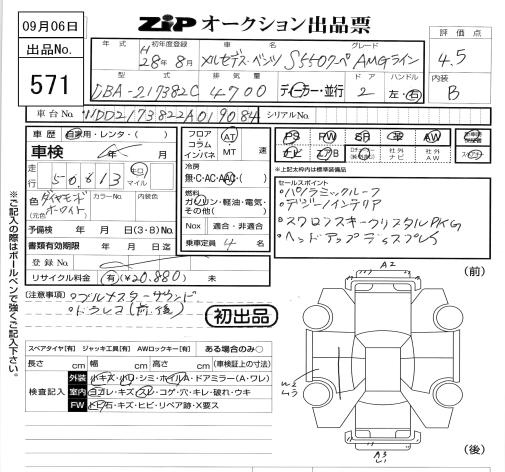 09月06日
出品No.
571
ZiP オークション出品票
評価点
4.5
内装
B
年式 初年度登録 車名 グレード
H 28年8月 メルセデス・ベンツ S550クーペ AMGライン
型式 排気量 ドア ハンドル
DBA-217382C 4700 ディーラー・並行 2 左・右
車台No. WDD2173822A019084A シリアルNo.
車歴 自家用・レンタ・( )
車検 年 月
走行 56,613 キロ マイル
色(元色) ダイヤモンドホワイト カラーNo. 内装色
予備検 年 月 日(3・8)No.
書類有効期限 年 月 日迄
登録No.
リサイクル料金 有(¥20,880) 未
フロア コラム インパネ AT・MT 速
冷房 無・C・AC・AAC・( )
燃料 ガソリン・軽油・電気・その他( )
Nox 適合・非適合
乗車定員 4 名
PS PW SR 革 AW
ナビ TV AB 社外ナビ 社外AW
※上記太枠内は標準装備品
セールスポイント
・パノラミックルーフ
・デジーノインテリア
・スワロフスキークリスタルPKG
・ヘッドアップディスプレイ
(注意事項)
・ブルメスターサウンド
・ドラレコ(前・後)
初出品
スペアタイヤ[有] ジャッキ工具[有] AWロックキー[有] ある場合のみ○
長さ cm 幅 cm 高さ cm (車検証上の寸法)
検査記入
外装 小キズ・小ワ・シミ・ホイルA・ドアミラー(A・ワレ)
室内 ヨゴレ・キズ・スレ・コゲ・穴・キレ・破れ・ウキ
FW 飛石・キズ・ヒビ・リペア跡・X要ス
※ご記入の際はボールペンで強くご記入下さい。
(前)
A2
W2
A3
(後)